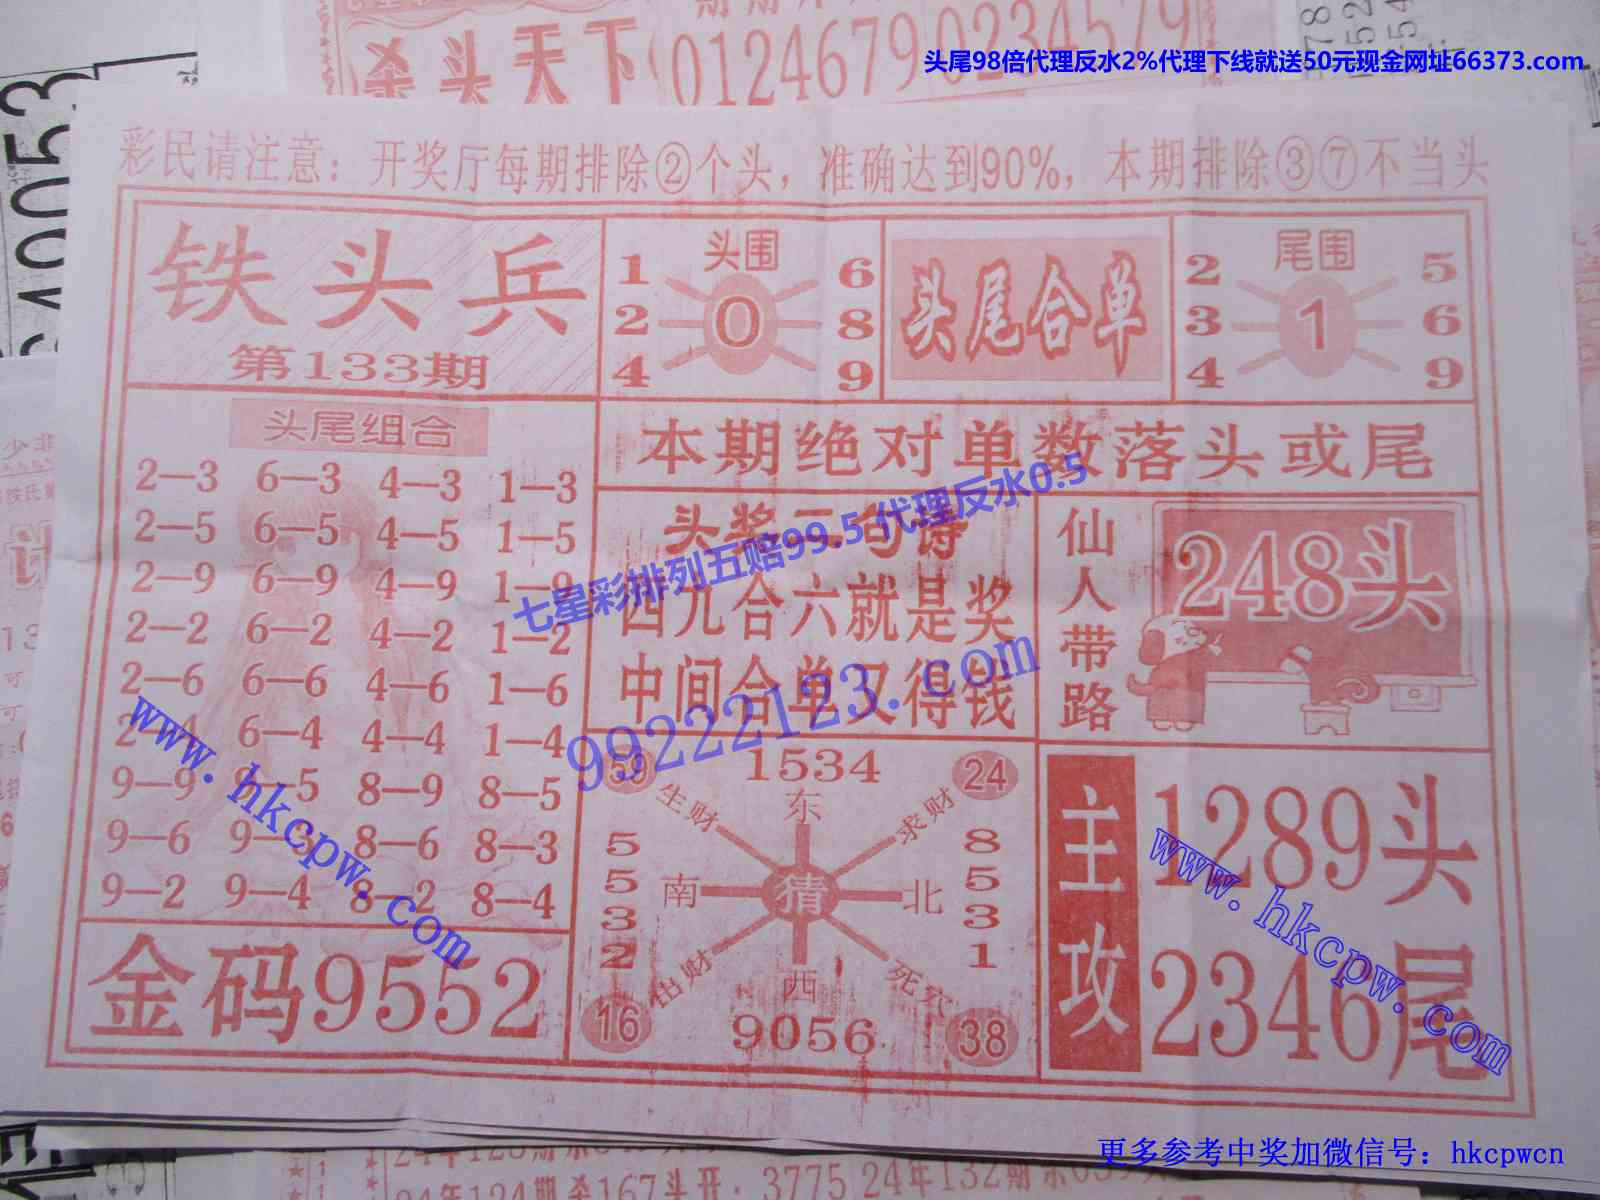 杀头天下
0124679
0234579
头尾98倍代理反水2%代理下线就送50元现金网址66373.com
彩民请注意：开奖厅每期排除②个头，准确达到90%，本期排除③⑦不当头
铁头兵
第133期
头围
1 6
2 0 8
4 9
头尾合单
尾围
2 5
3 1 6
4 9
头尾组合
2—3 6—3 4—3 1—3
2—5 6—5 4—5 1—5
2—9 6—9 4—9 1—9
2—2 6—2 4—2 1—2
2—6 6—6 4—6 1—6
2—4 6—4 4—4 1—4
9—9 9—5 8—9 8—5
9—6 9—3 8—6 8—3
9—2 9—4 8—2 8—4
金码9552
本期绝对单数落头或尾
头奖二句诗
四九合六就是奖
中间合单又得钱
七星彩排列五赔99.5代理反水0.5
99222123.com
仙人带路
248头
59 1534 24
生财 东 求财
5532
南 猜 北
8531
出财 西 死穴
16 9056 38
主攻
1289头
2346尾
www.hkcpw.com
www.hkcpw.com
更多参考中奖加微信号：hkcpwcn